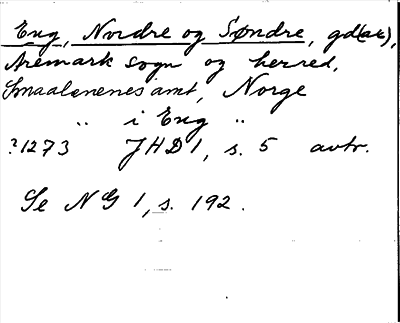 Eng, Nordre og Søndre, gd(ar),
Aremark sogn og herred,
Smaalenenes amt, Norge
" i Eng "
?1273 JHD 1, s. 5 avtr.
Se NG 1, s. 192.